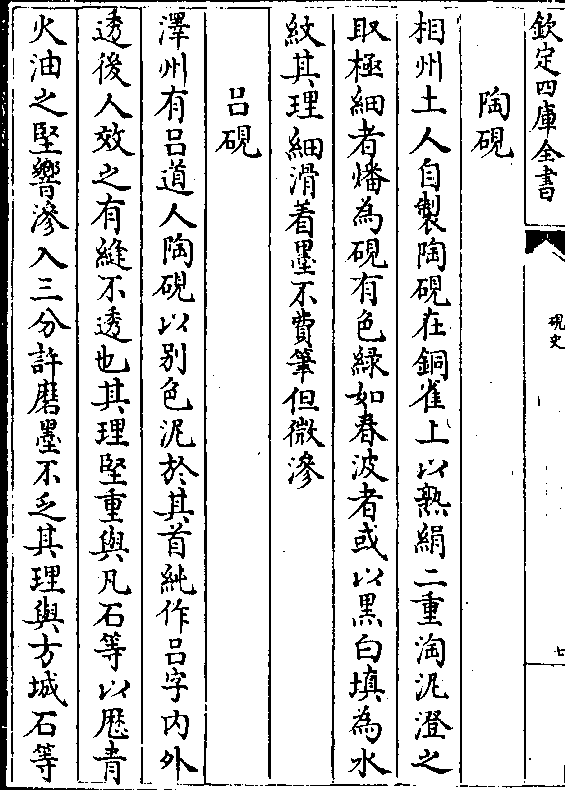 欽定四庫全書
硯史
七
陶硯
相州土人自製陶硯在銅雀上以熟絹二重淘泥澄之
取極細者燔為硯有色緑如春波者或以黒白填為水
紋其理細滑着墨不費筆但微滲
吕硯
澤州有吕道人陶硯以别色泥於其首純作吕字内外
透後人效之有縫不透也其理堅重與凡石等以厯青
火油之堅響滲入三分許磨墨不乏其理與方城石等